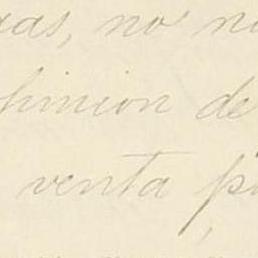 as, no no
pinion de
venta p